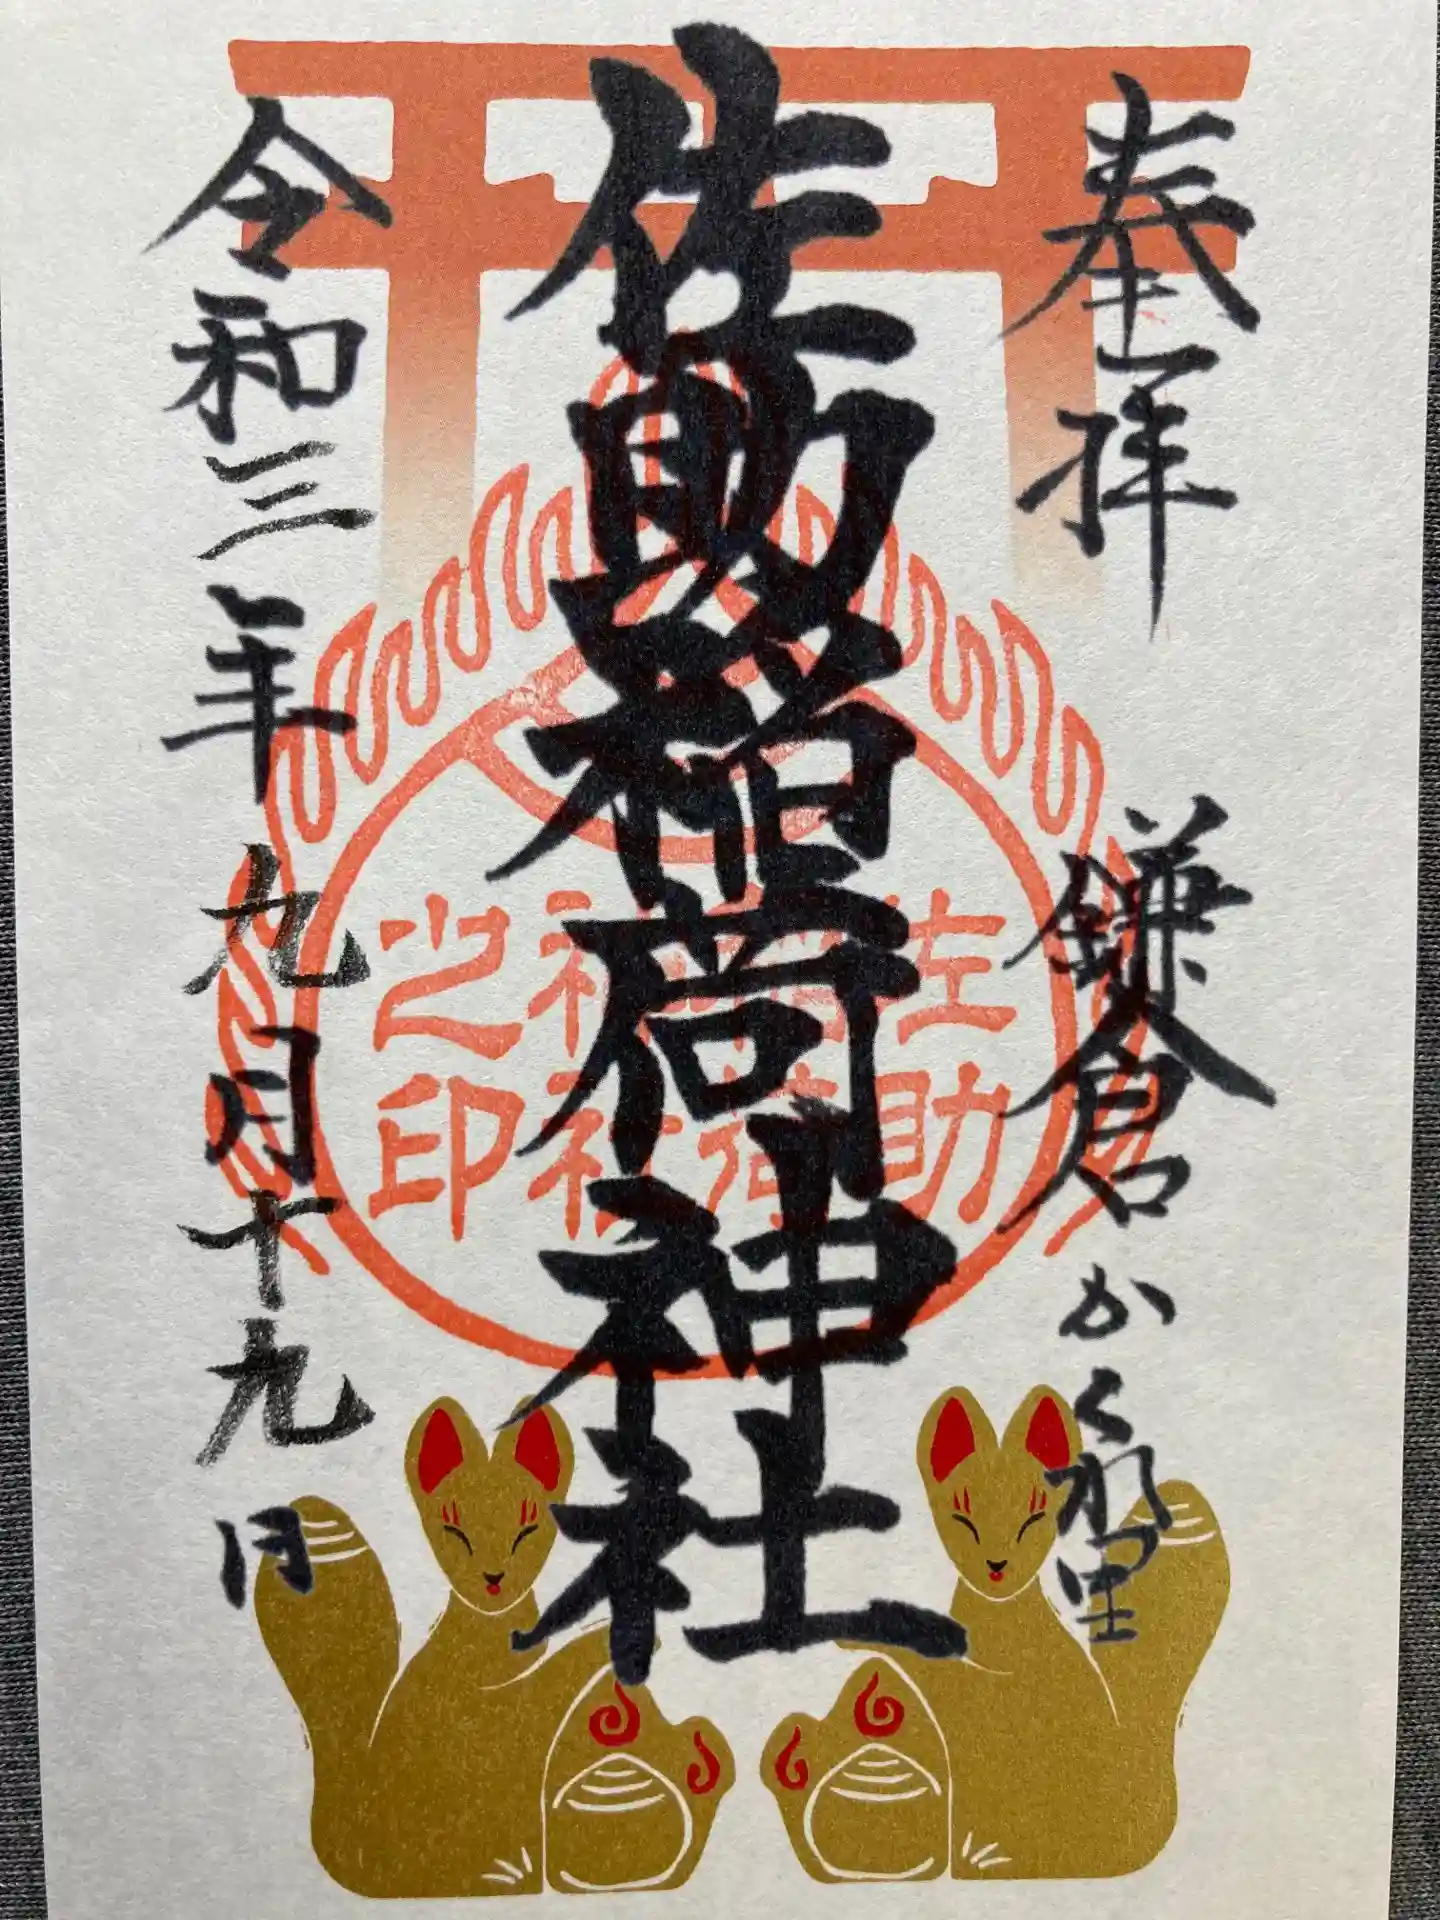 奉拝 鎌倉かくれ里
佐助稲荷神社
令和三年九月十九日
佐助
稲荷
神社
之印